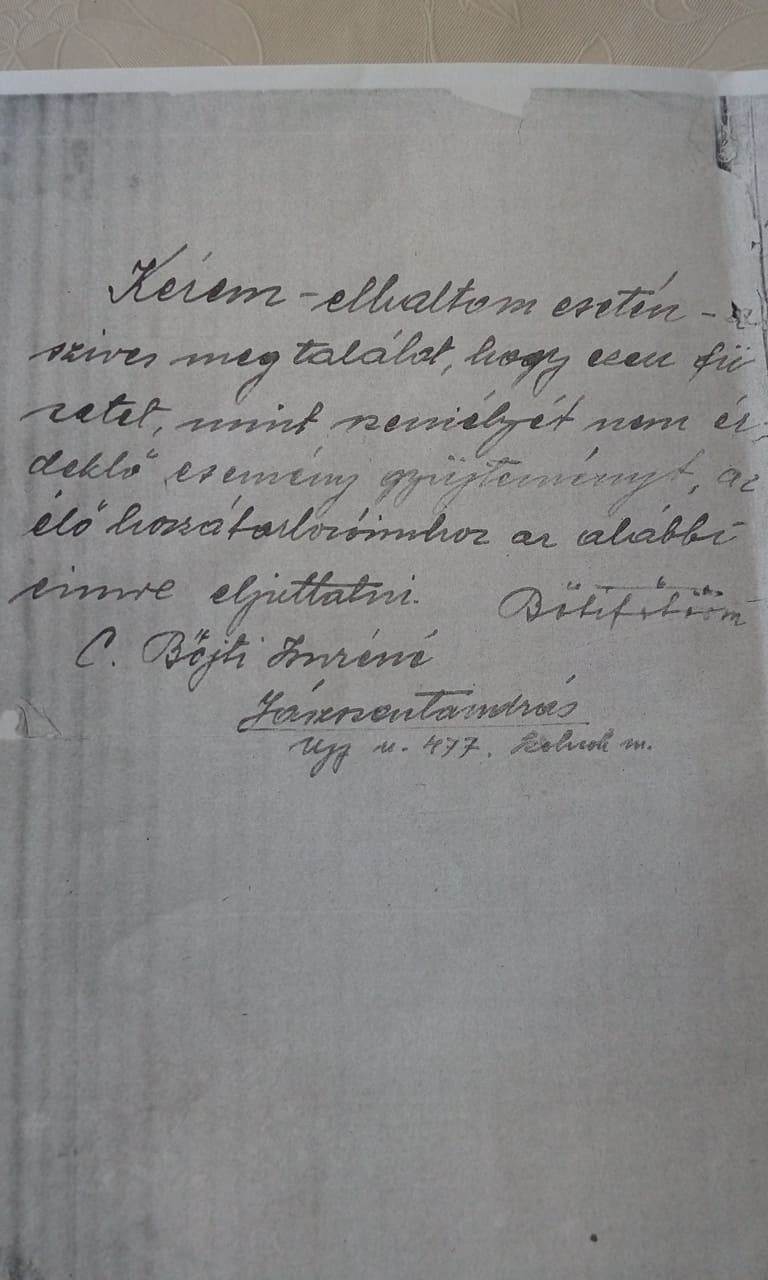 Kérem - elhaltom esetén - a
szives megtalálót, hogy ezen fü
zetet, mint személyét nem ér-
deklő esemény gyüjteményt, az
élő hozzátartozóimhoz az alábbi
cimre eljuttatni.
C. Böjti Imréné
Jászszentandrás
u. 477. Szolnok m.